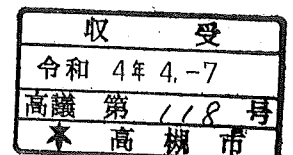 収 受
令和 4年 4.-7
高議 第 118 号
★ 高槻市